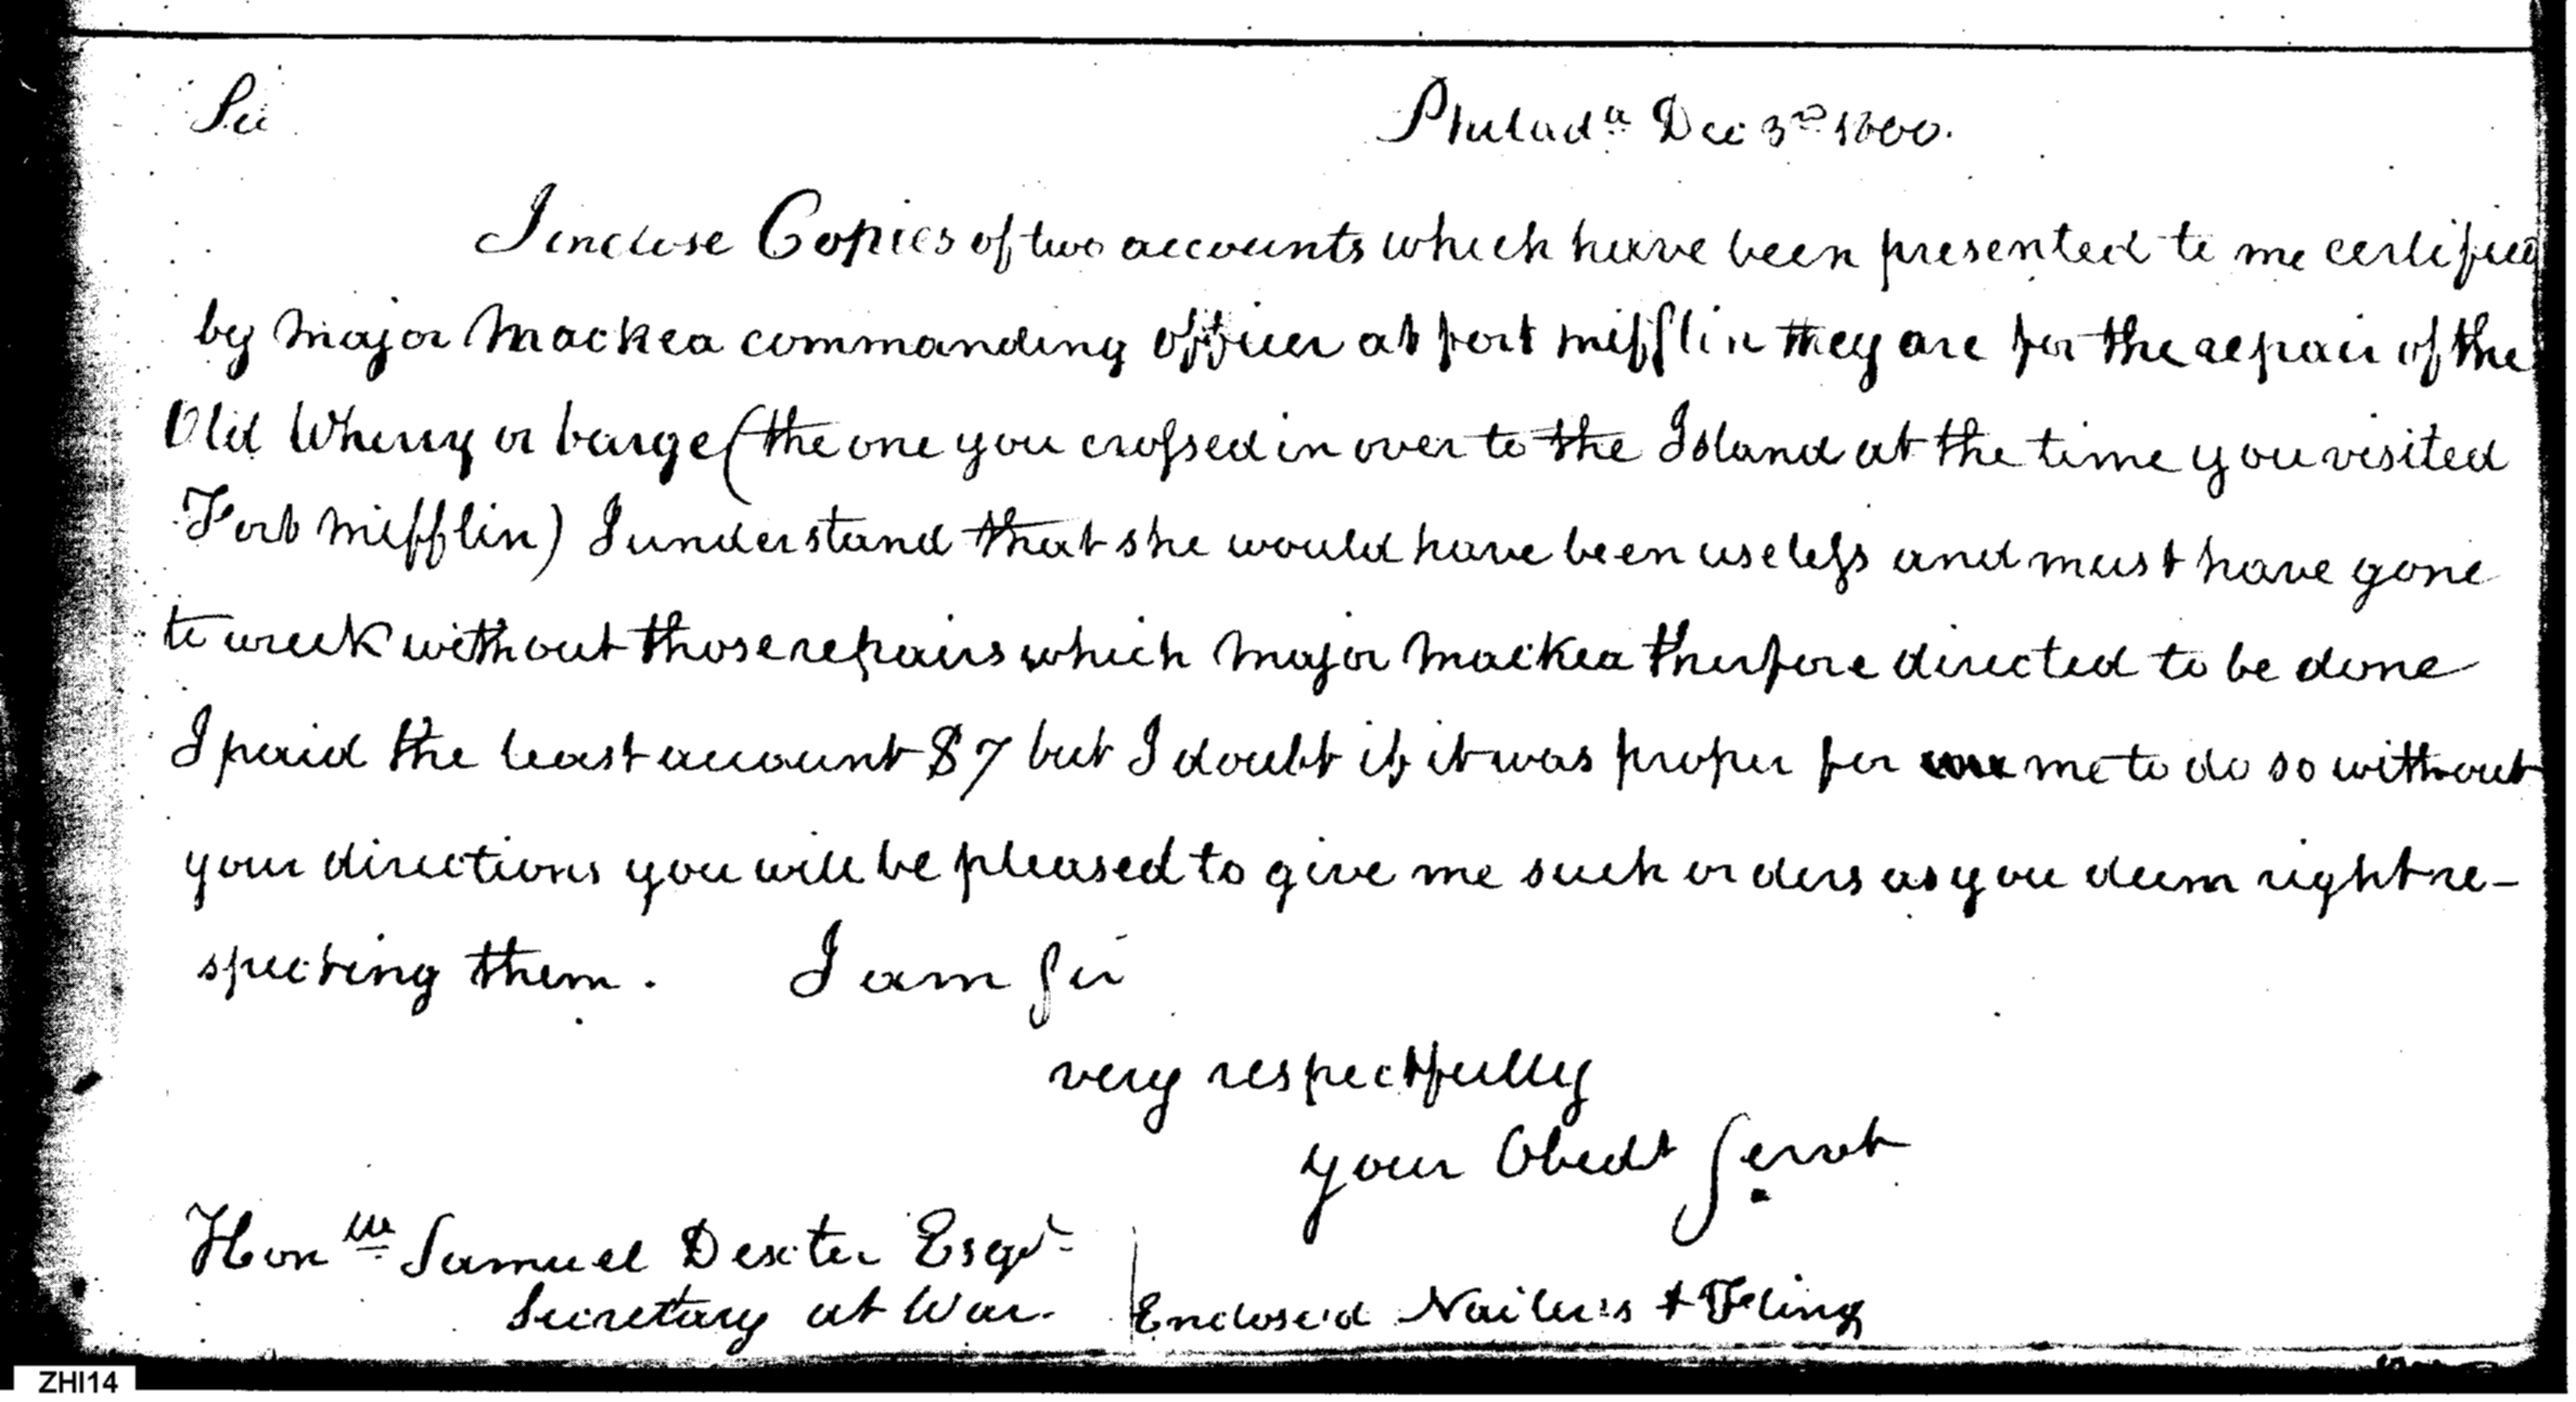 Sir Philad.a Dec 3rd 1800.
I inclose Copies of two accounts which have been presented to me certified
by Major Mackea commanding officer at fort mifflin they are for the repair of the
Old Wherry or barge (the one you crossed in over to the Island at the time you visited
Fort Mifflin) I understand that she would have been useless and must have gone
to wreck without those repairs which Major Mackea therfore directed to be done
I paid the least account $7 but I doubt if it was proper for me to do so without
your directions you will be pleased to give me such orders as you deem right re-
specting them. I am Sir
very respectfully
your Obedt Servt
Honble Samuel Dexter Esqr
Secretary at War. Enclose'd Nailer's & Fling
ZHI14